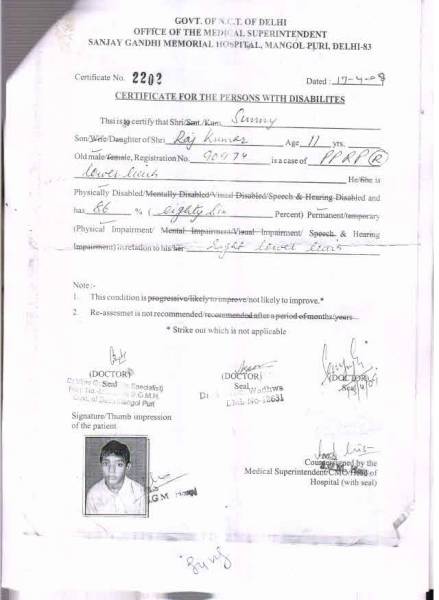 GOVT. OF N.C.T. OF DELHI
OFFICE OF THE MEDICAL SUPERINTENDENT
SANJAY GANDHI MEMORIAL HOSPITAL, MANGOL PURI, DELHI-83
Certificate No. 2202 Dated : 17-4-09
CERTIFICATE FOR THE PERSONS WITH DISABILITES
This is to certify that Shri/Smt./Kum. Sunny
Son/Wife/Daughter of Shri Raj Kumar Age 11 yrs.
Old male/female, Registration No. 90974 is a case of PPRP (R)
lower limb He/She is
Physically Disabled/Mentally Disabled/Visual Disabled/Speech & Hearing Disabled and
has 86 % ( eighty six Percent) Permanent/temporary
(Physical Impairment/ Mental Impairment/Visual Impairment/ Speech & Hearing
Impairment) in relation to his/her right lower limb
Note :-
1. This condition is progressive/likely to improve/not likely to improve.*
2. Re-assesmet is not recommended/recommended after a period of months/years
* Strike out which is not applicable
(DOCTOR) (DOCTOR) (DOCTOR)
Seal Seal Seal
Wadhwa
Signature/Thumb impression
of the patient
Countersigned by the
Medical Superintendent/CMO/Head of
Hospital (with seal)